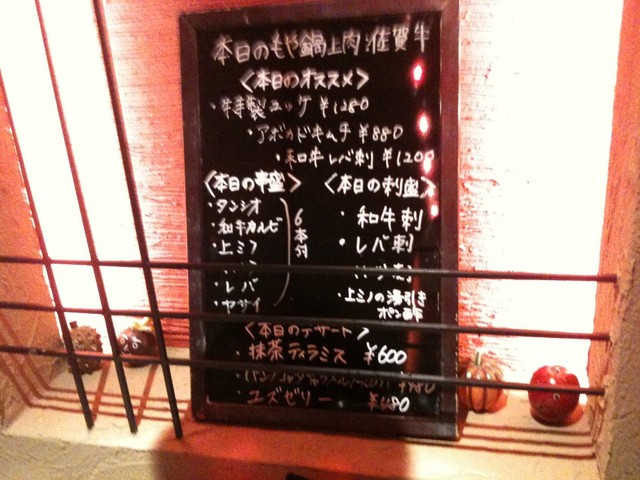 本日のもや鍋上肉:佐賀牛
<本日のオススメ>
・特製ユッケ ¥1280
・アボカドキムチ ¥880
・和牛レバ刺 ¥1200
<本日の串盛>
・タンシオ
・和牛カルビ
・上ミノ
・レバ
・ヤサイ
6本付
<本日の刺盛>
・和牛刺
・レバ刺
・上ミノの湯引き
ポン酢
<本日のデザート>
・抹茶ティラミス ¥600
・ユズゼリー ¥480